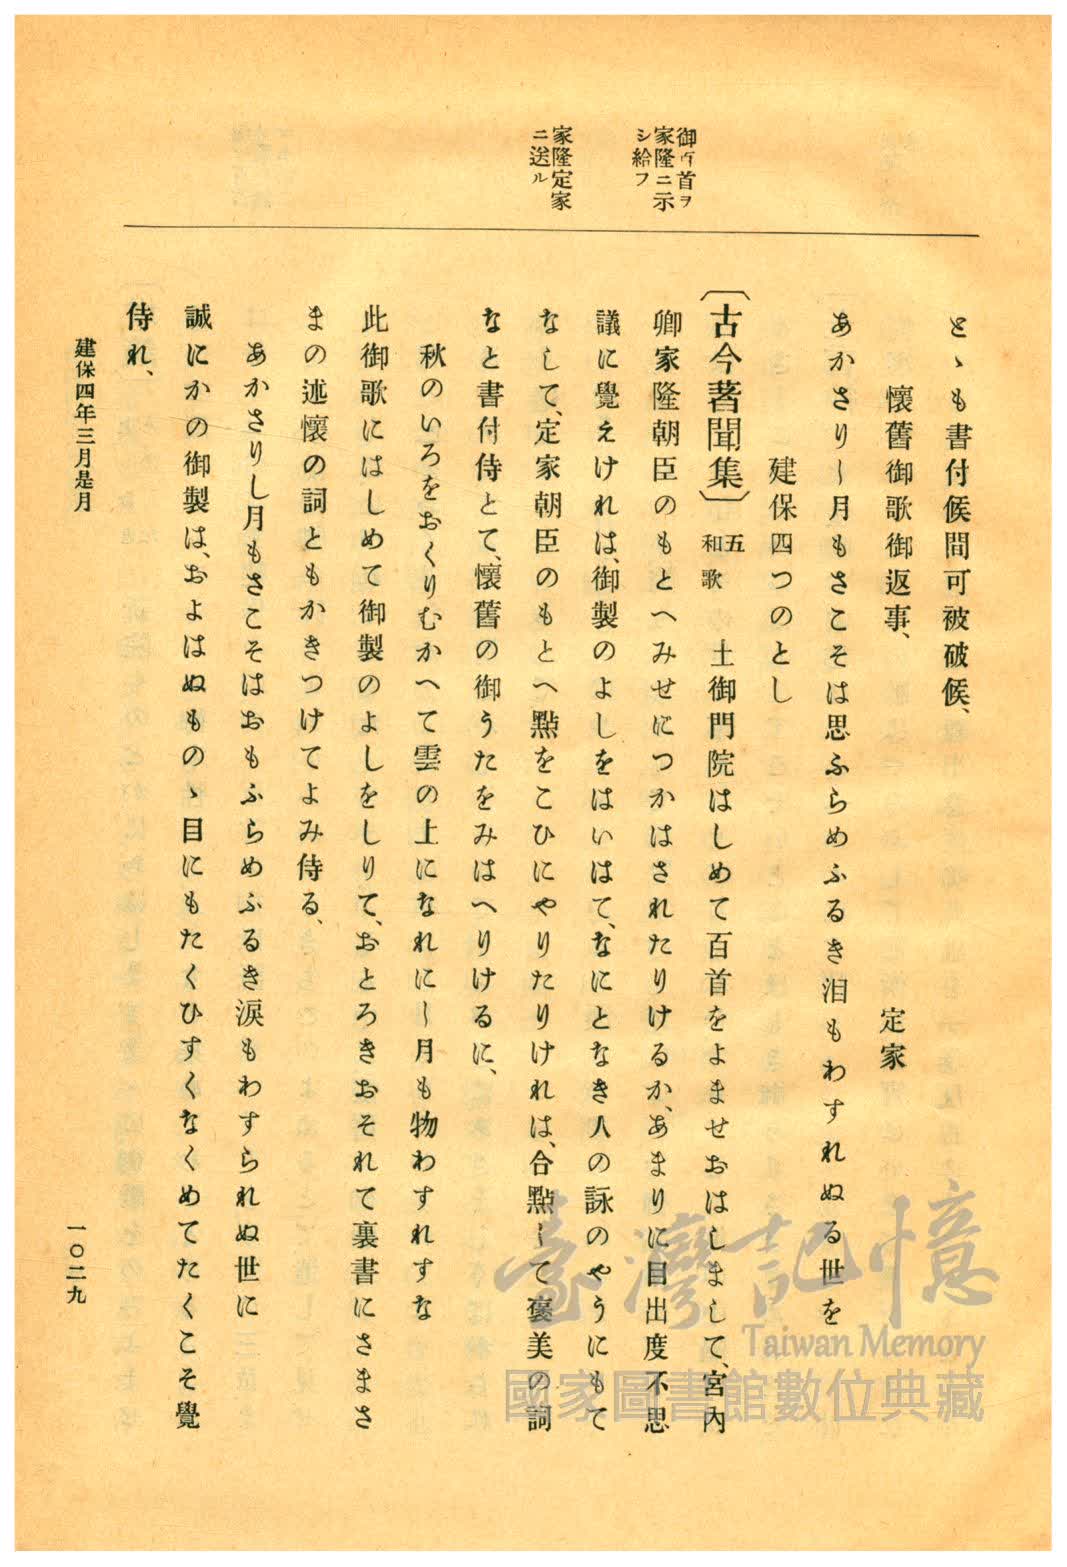 御百首ヲ
家隆ニ示
シ給フ
家隆定家
ニ送ル
とゝも書付候間可被破候、
懷舊御歌御返事、
定家
あかさりし月もさこそは思ふらめふるき泪もわすれぬる世を
建保四つのとし
〔古今著聞集〕五
和歌
土御門院はしめて百首をよませおはしまして、宮內
卿家隆朝臣のもとへみせにつかはされたりけるか、あまりに目出度不思
議に覺えけれは、御製のよしをはいはて、なにとなき人の詠のやうにもて
なして、定家朝臣のもとへ點をこひにやりたりけれは、合點して褒美の詞
なと書付侍とて、懷舊の御うたをみはへりけるに、
秋のいろをおくりむかへて雲の上になれにし月も物わすれすな
此御歌にはしめて御製のよしをしりて、おとろきおそれて裏書にさまさ
まの述懷の詞ともかきつけてよみ侍る、
あかさりし月もさこそはおもふらめふるき淚もわすられぬ世に
誠にかの御製は、およはぬものゝ目にもたくひすくなくめてたくこそ覺
侍れ、
建保四年三月是月
一〇二九
臺灣記憶
Taiwan Memory
國家圖書館數位典藏